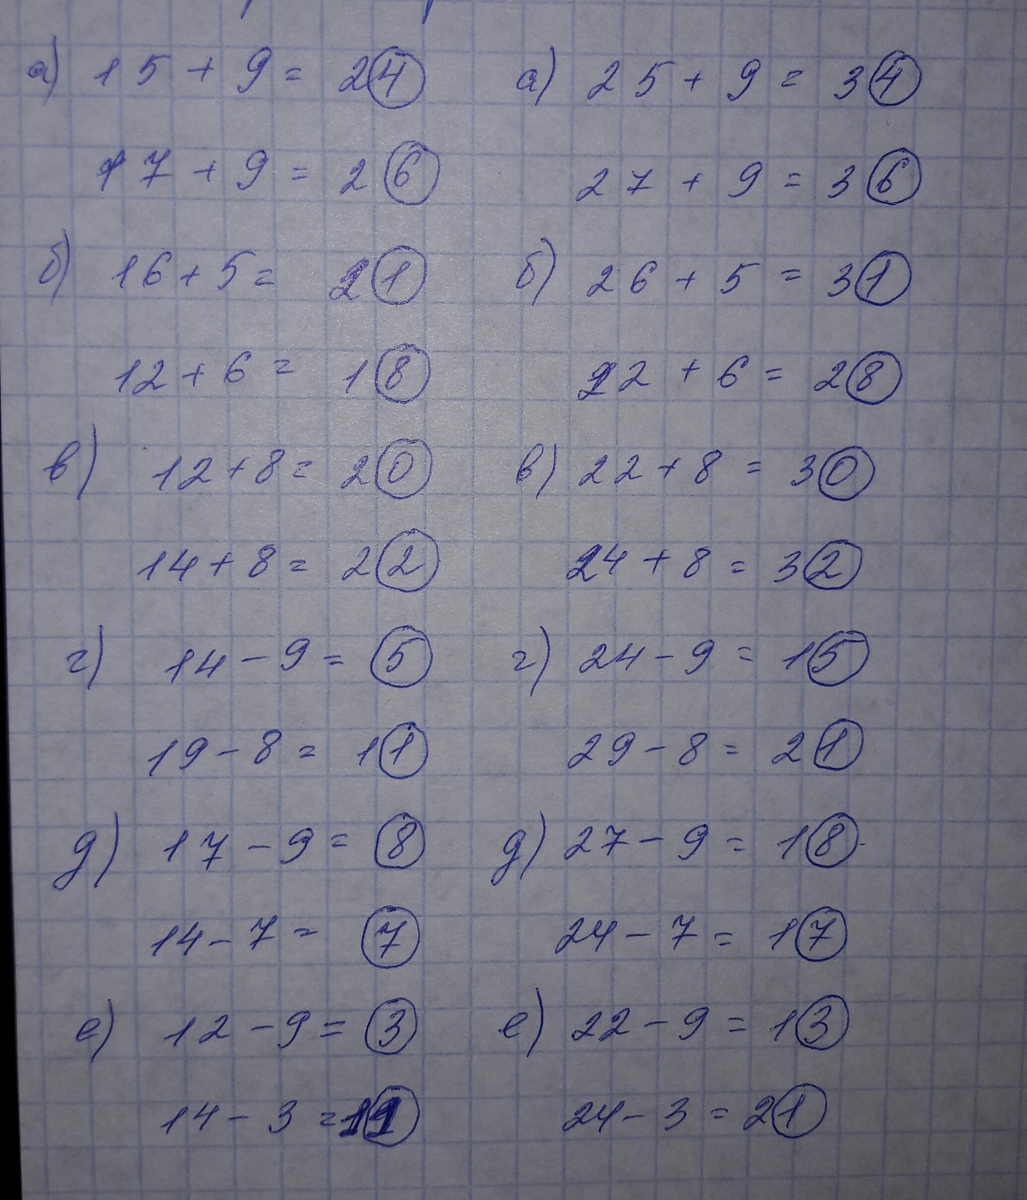 а) 15 + 9 = 24 а) 25 + 9 = 34
17 + 9 = 26 27 + 9 = 36
б) 16 + 5 = 21 б) 26 + 5 = 31
12 + 6 = 18 22 + 6 = 28
в) 12 + 8 = 20 в) 22 + 8 = 30
14 + 8 = 22 24 + 8 = 32
г) 14 - 9 = 5 г) 24 - 9 = 15
19 - 8 = 11 29 - 8 = 21
д) 17 - 9 = 8 д) 27 - 9 = 18
14 - 7 = 7 24 - 7 = 17
е) 12 - 9 = 3 е) 22 - 9 = 13
14 - 3 = 11 24 - 3 = 21